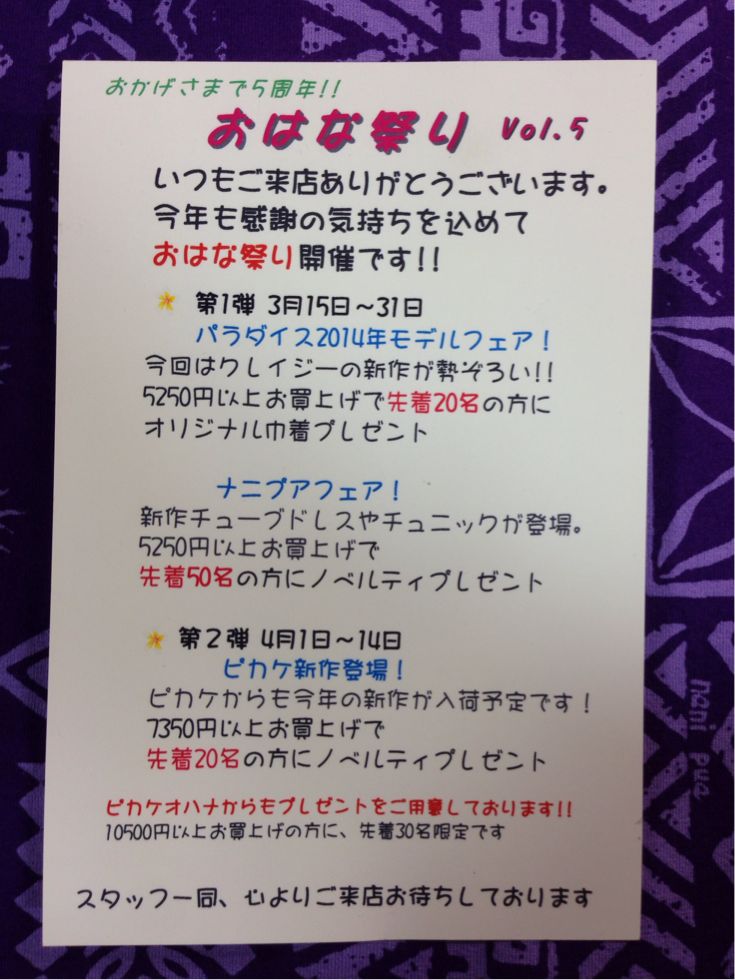 おかげさまで5周年!!
おはな祭り Vol.5
いつもご来店ありがとうございます。
今年も感謝の気持ちを込めて
おはな祭り開催です!!
第1弾 3月15日～31日
パラダイス2014年モデルフェア!
今回はクレイジーの新作が勢ぞろい!!
5250円以上お買上げで先着20名の方に
オリジナル巾着プレゼント
ナニプアフェア!
新作チューブドレスやチュニックが登場。
5250円以上お買上げで
先着50名の方にノベルティプレゼント
第2弾 4月1日～14日
ピカケ新作登場!
ピカケからも今年の新作が入荷予定です!
7350円以上お買上げで
先着20名の方にノベルティプレゼント
ピカケオハナからもプレゼントをご用意しております!!
10500円以上お買上げの方に、先着30名限定です
スタッフ一同、心よりご来店お待ちしております
nani pua